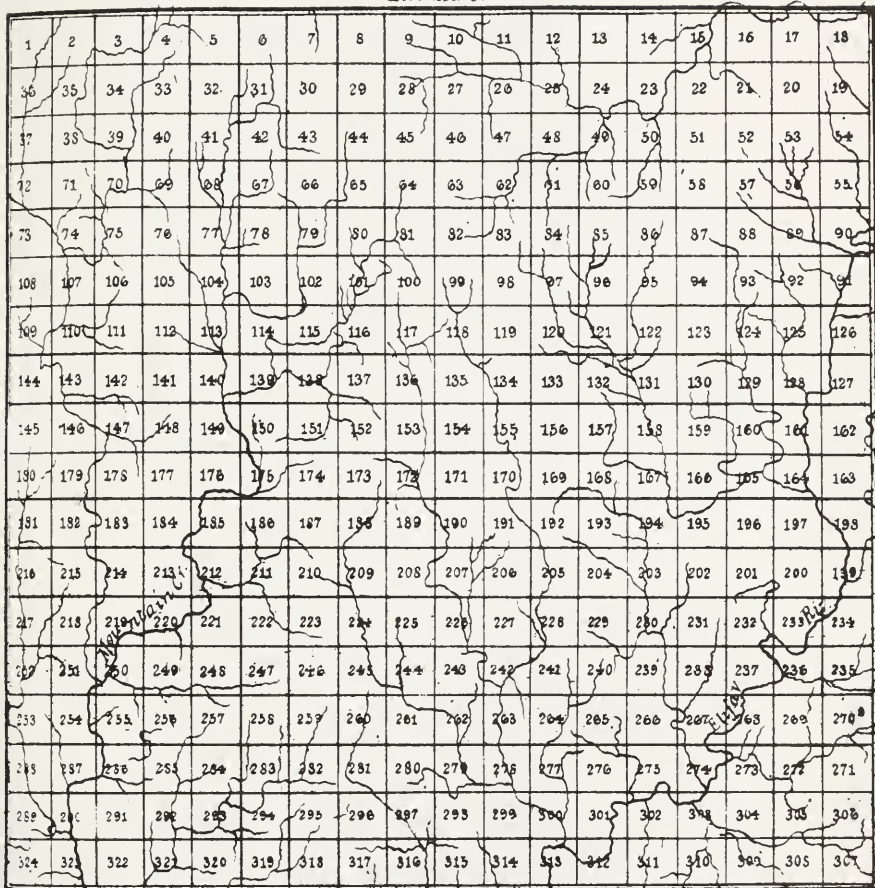 1 2 3 4 5 6 7 8 9 10 11 12 13 14 15 16 17 18
36 35 34 33 32 31 30 29 28 27 26 25 24 23 22 21 20 19
37 38 39 40 41 42 43 44 45 46 47 48 49 50 51 52 53 54
72 71 70 69 68 67 66 65 64 63 62 61 60 59 58 57 56 55
73 74 75 76 77 78 79 80 81 82 83 84 85 86 87 88 89 90
108 107 106 105 104 103 102 101 100 99 98 97 96 95 94 93 92 91
109 110 111 112 113 114 115 116 117 118 119 120 121 122 123 124 125 126
144 143 142 141 140 139 138 137 136 135 134 133 132 131 130 129 128 127
145 146 147 148 149 150 151 152 153 154 155 156 157 158 159 160 161 162
180 179 178 177 176 175 174 173 172 171 170 169 168 167 166 165 164 163
181 182 183 184 185 186 187 188 189 190 191 192 193 194 195 196 197 198
216 215 214 213 212 211 210 209 208 207 206 205 204 203 202 201 200 199
217 218 219 220 221 222 223 224 225 226 227 228 229 230 231 232 233 234
Mountain C
Riv
251 250 249 248 247 246 245 244 243 242 241 240 239 238 237 236 235
253 254 255 256 257 258 259 260 261 262 263 264 265 266 267 268 269 270
Ellijay
288 287 286 285 284 283 282 281 280 279 278 277 276 275 274 273 272 271
289 290 291 292 293 294 295 296 297 298 299 300 301 302 303 304 305 306
324 323 322 321 320 319 318 317 316 315 314 313 312 311 310 309 308 307